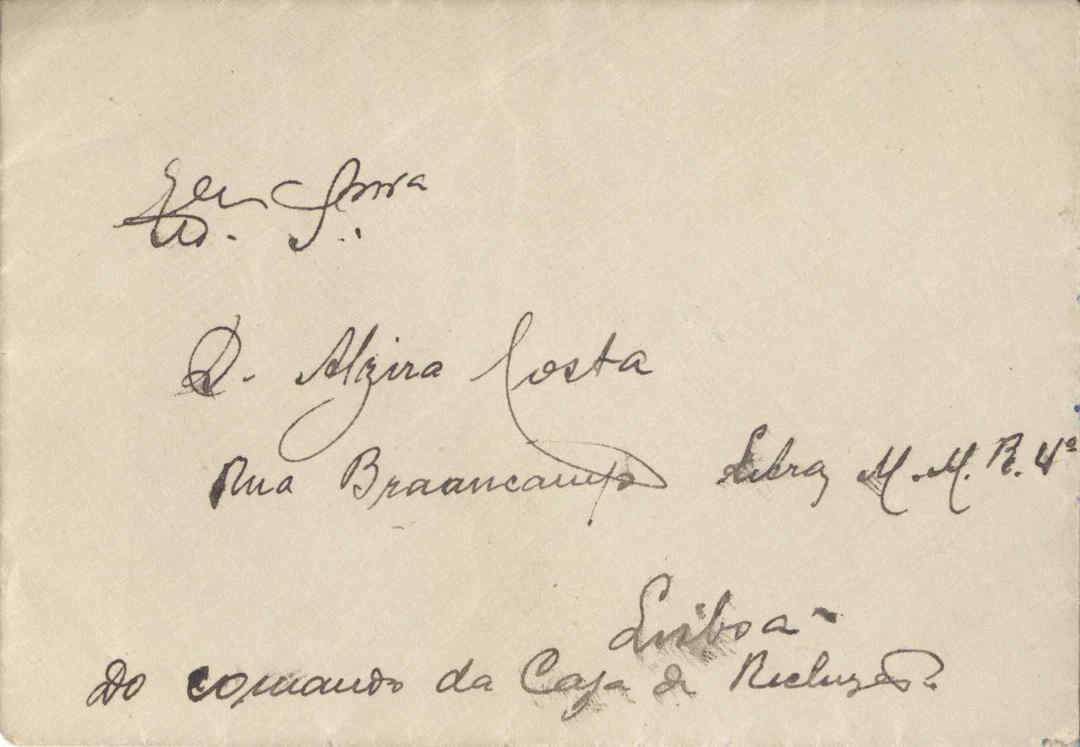 Exma Snra
D. Alzira Costa
Rua Braancamp Letra M. M. R. 4º
Lisboa -
Do comando da Caza de Recluzão.